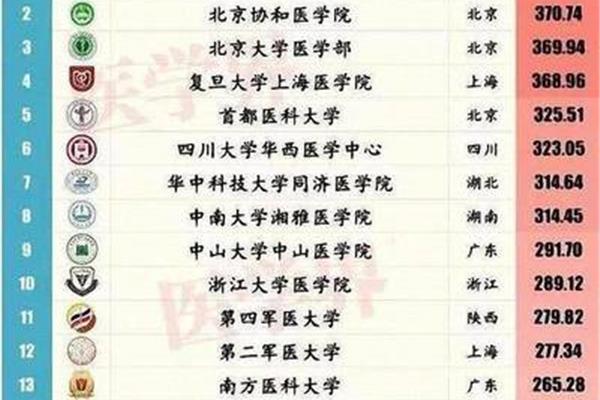 2 北京协和医学院 北京 370.74
3 北京大学医学部 北京 369.94
4 复旦大学上海医学院 上海 368.96
5 首都医科大学 北京 325.51
6 四川大学华西医学中心 四川 323.05
7 华中科技大学同济医学院 湖北 314.64
8 中南大学湘雅医学院 湖南 314.45
9 中山大学中山医学院 广东 291.70
10 浙江大学医学院 浙江 289.12
11 第四军医大学 陕西 279.82
12 第二军医大学 上海 277.34
13 南方医科大学 广东 265.28